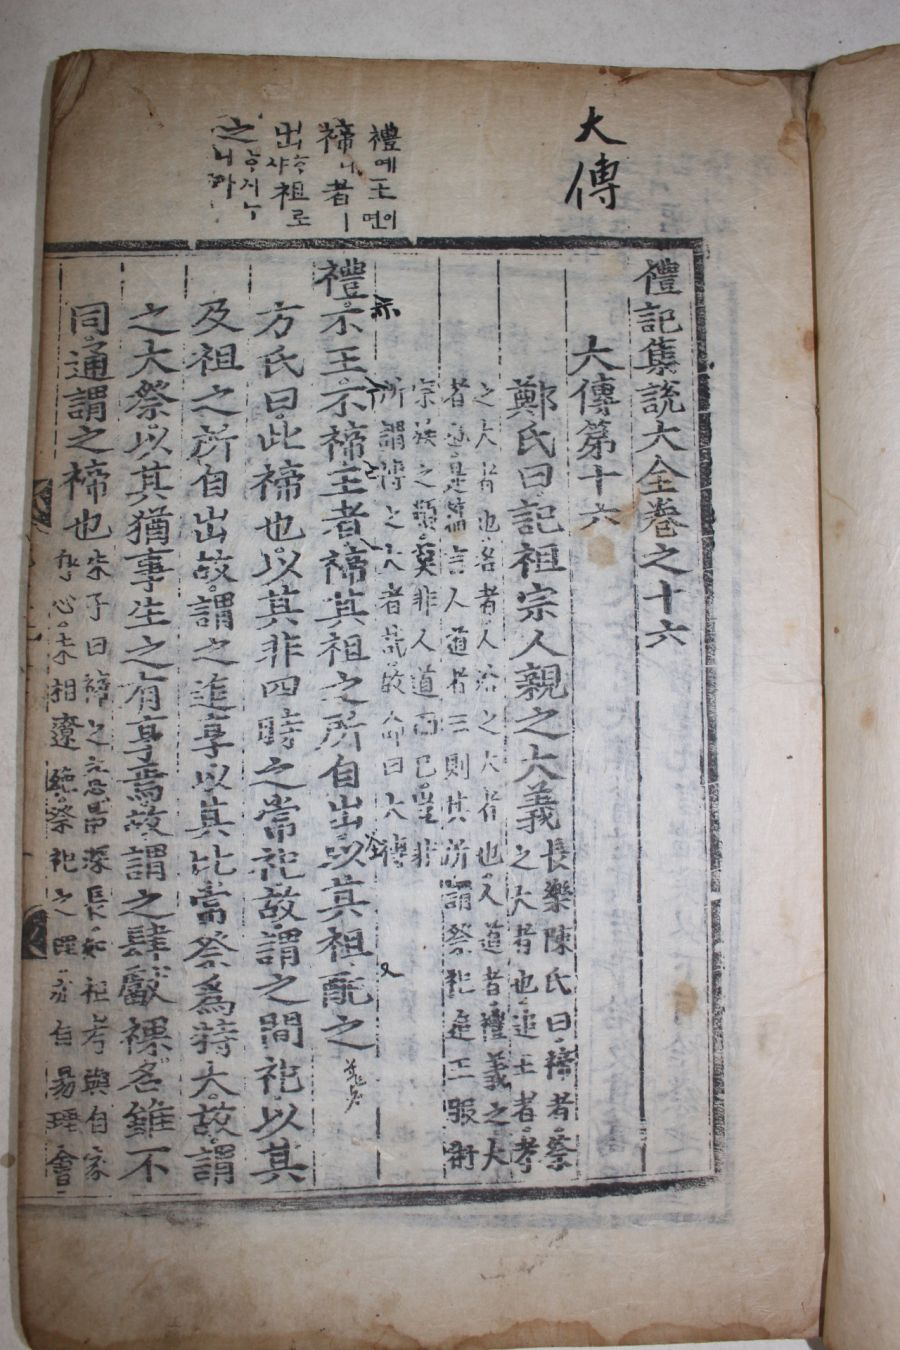 大傳
禮에王이면
禘니者ㅣ
出ᄒᆞ샤祖로
之ᄒᆞ지누니라
禮記集說大全卷之十六
大傳第十六
鄭氏曰記祖宗人親之大義長樂陳氏曰禘者祭
之大者也追王者孝
之大者也洛者人治之大者也人道者禮義之大
者也是篇言人道者三則其所謂祭祀追王服術
宗族之類莫非人道而已豈非
所謂傳之大者哉故命曰大傳
禮不王不禘王者禘其祖之所自出以其祖配之
方氏曰此禘也以其非四時之常祀故謂之間祀以其
及祖之所自出故謂之追享以其比常祭爲特大故謂
之大祭以其猶事生之有享焉故謂之肆獻祼名雖不
同通謂之禘也朱子曰禘之意最深長如祖考與自家
身心未相遼絶祭祀之理亦自易理會